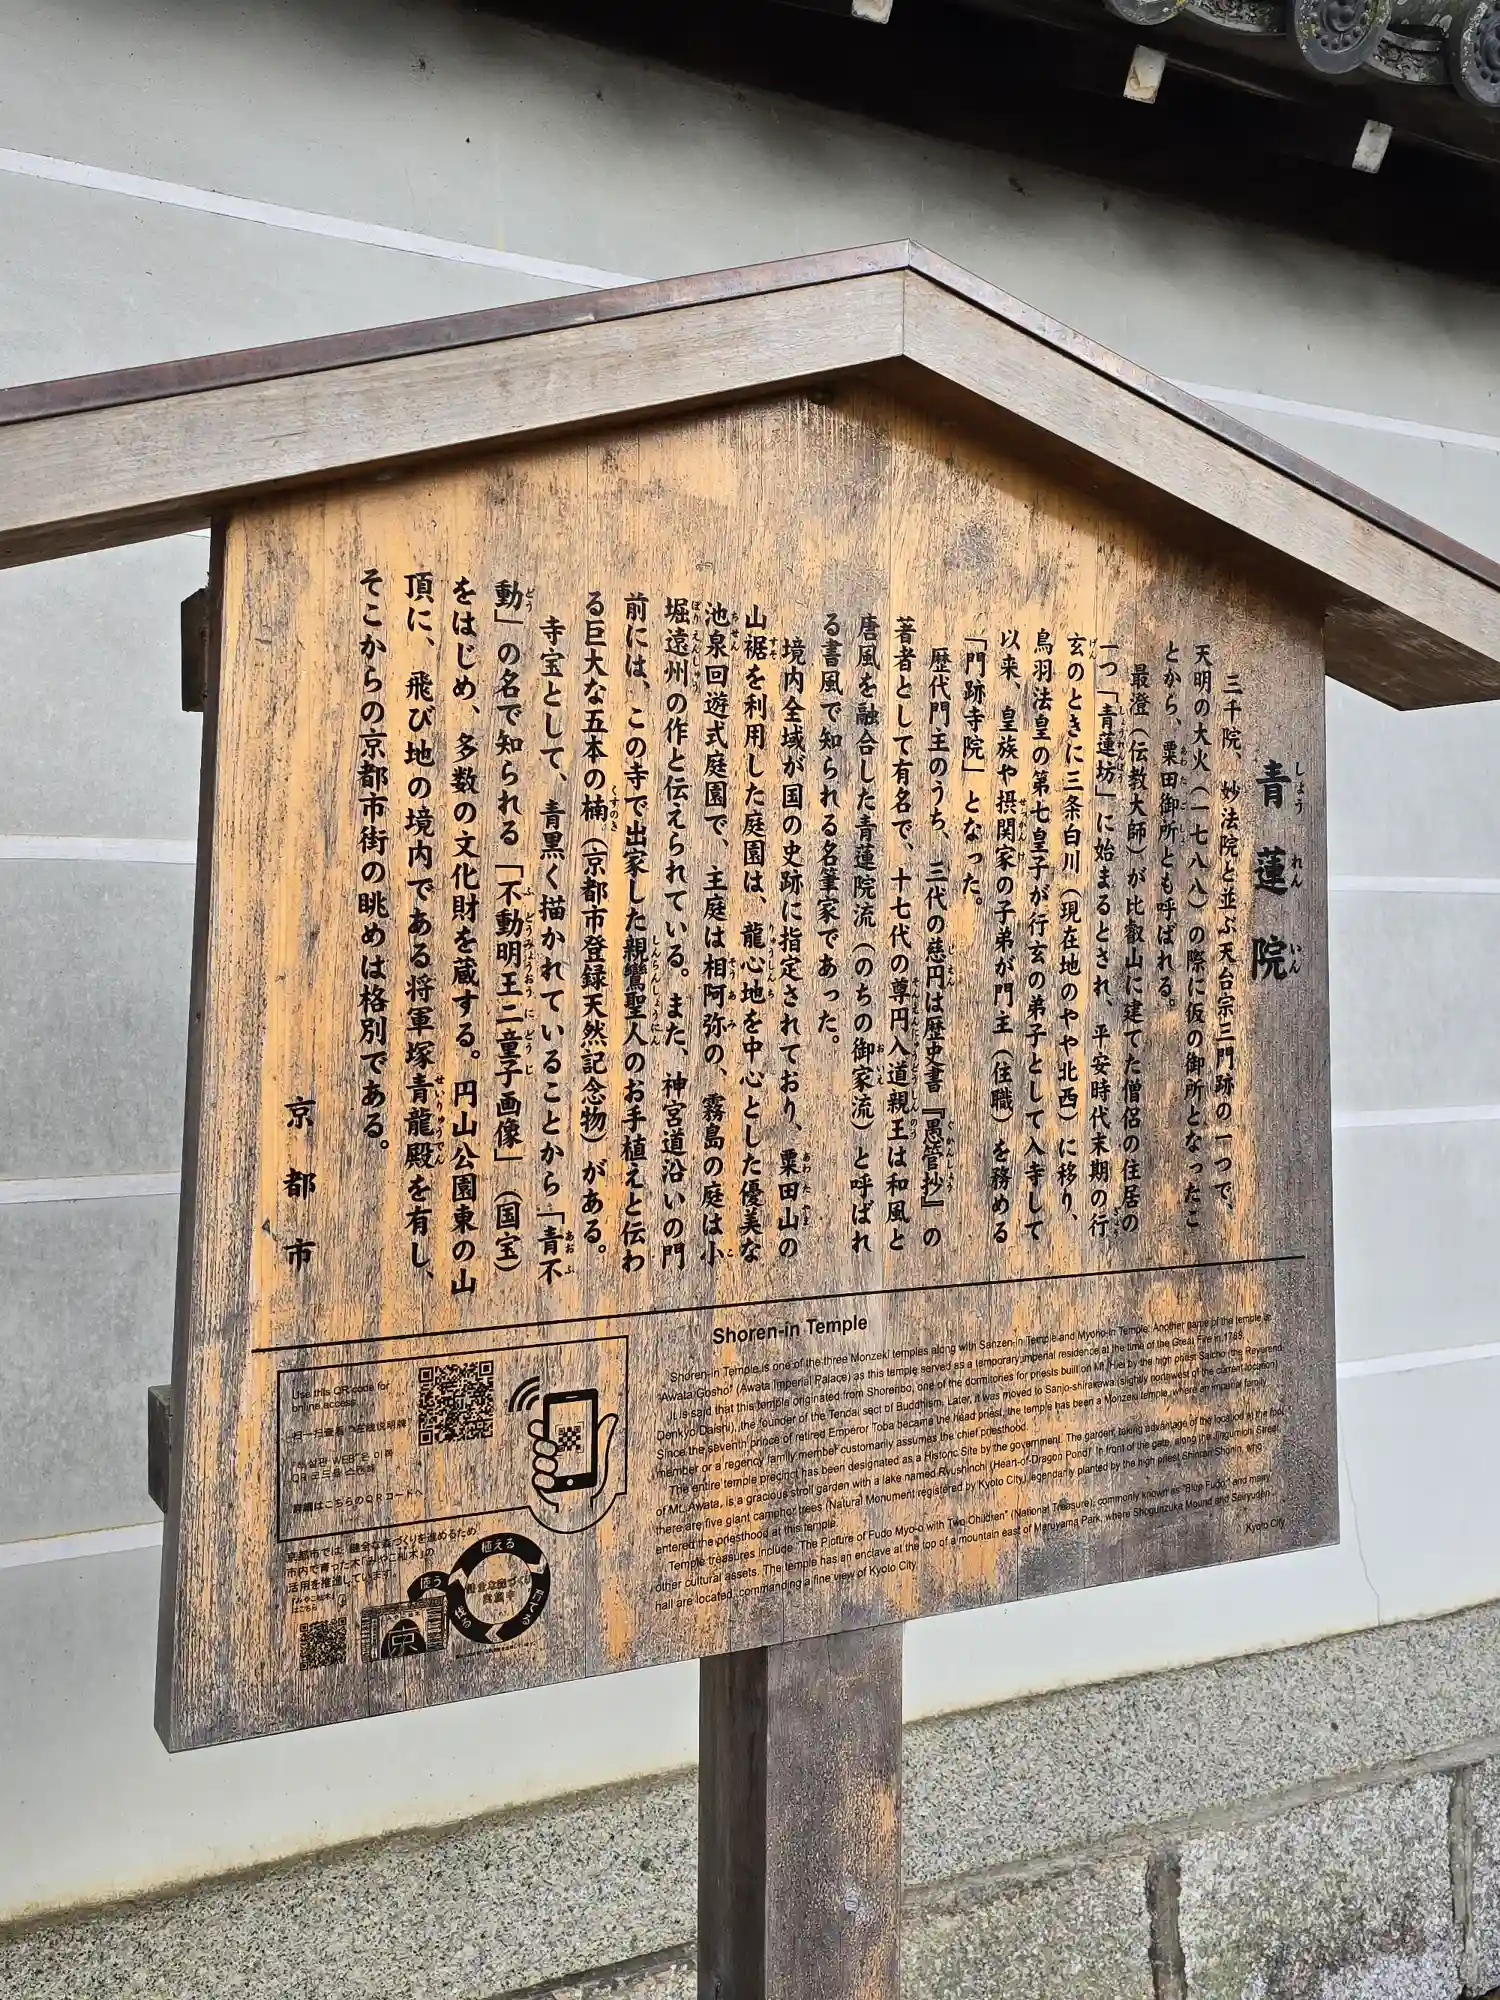 青蓮院
三千院、妙法院と並ぶ天台宗三門跡の一つで、
天明の大火(一七八八)の際に仮の御所となったこ
とから、粟田御所とも呼ばれる。
最澄(伝教大師)が比叡山に建てた僧侶の住居の
一つ「青蓮坊」に始まるとされ、平安時代末期の行
玄のときに三条白川(現在地のやや北西)に移り、
鳥羽法皇の第七皇子が行玄の弟子として入寺して
以来、皇族や摂関家の子弟が門主(住職)を務める
「門跡寺院」となった。
歴代門主のうち、三代の慈円は歴史書『愚管抄』の
著者として有名で、十七代の尊円入道親王は和風と
唐風を融合した青蓮院流(のちの御家流)と呼ばれ
る書風で知られる名筆家であった。
境内全域が国の史跡に指定されており、粟田山の
山裾を利用した庭園は、龍心池を中心とした優美な
池泉回遊式庭園で、主庭は相阿弥の、霧島の庭は小
堀遠州の作と伝えられている。また、神宮道沿いの門
前には、この寺で出家した親鸞聖人のお手植えと伝わ
る巨大な五本の楠(京都市登録天然記念物)がある。
寺宝として、青黒く描かれていることから「青不
動」の名で知られる「不動明王二童子画像」(国宝)
をはじめ、多数の文化財を蔵する。円山公園東の山
頂に、飛び地の境内である将軍塚青龍殿を有し、
そこからの京都市街の眺めは格別である。
京都市
Shoren-in Temple
Shoren-in Temple is one of the three Monzeki temples along with Sanzen-in Temple and Myoho-in Temple. Another name of the temple is
"Awata Gosho" (Awata Imperial Palace) as this temple served as a temporary imperial residence at the time of the Great Fire in 1788.
It is said that this temple originated from Shorenbo, one of the dormitories for priests built on Mt. Hiei by the high priest Saicho (the Reverend
Denkyo Daishi), the founder of the Tendai sect of Buddhism. Later, it was moved to Sanjo-shirakawa (slightly northwest of the current location)
Since the seventh prince of retired Emperor Toba became the head priest, the temple has been a Monzeki temple, where an imperial family
member or a regency family member customarily assumes the chief priesthood.
The entire temple precinct has been designated as a Historic Site by the government. The garden, taking advantage of the location at the foot
of Mt. Awata, is a gracious stroll garden with a lake named Ryushinch (Heart-of-Dragon Pond). In front of the gate, along the Jingumichi Street,
there are five giant camphor trees (Natural Monument registered by Kyoto City) legendarily planted by the high priest Shinran Shonin, who
entered the priesthood at this temple.
Temple treasures include "The Picture of Fudo Myo-o with Two Children" (National Treasure), commonly known as "Blue Fudo," and many
other cultural assets. The temple has an enclave at the top of a mountain east of Maruyama Park, where Shogunzuka Mound and Seiryuden
hall are located, commanding a fine view of Kyoto City.
Kyoto City
Use this QR code for
online access.
扫一扫查看 在线说明牌
QR 코드를 스캔해
詳細はこちらのQRコードへ
京都市では、健全な森づくりを進めるため、
市内で育った木「みやこ杣木」の
活用を推進しています。
「みやこ杣木」
はこちら
植える
育てる
使う
京